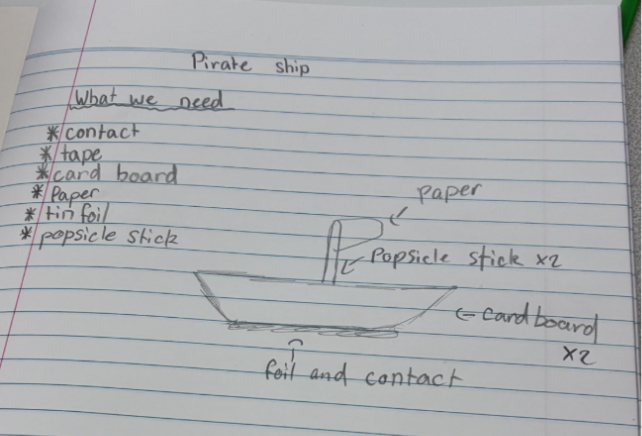 Pirate ship
What we need
* contact
* tape
* card board
* Paper
* tin foil
* popsicle stick
paper
Popsicle stick x2
cardboard
x2
foil and contact